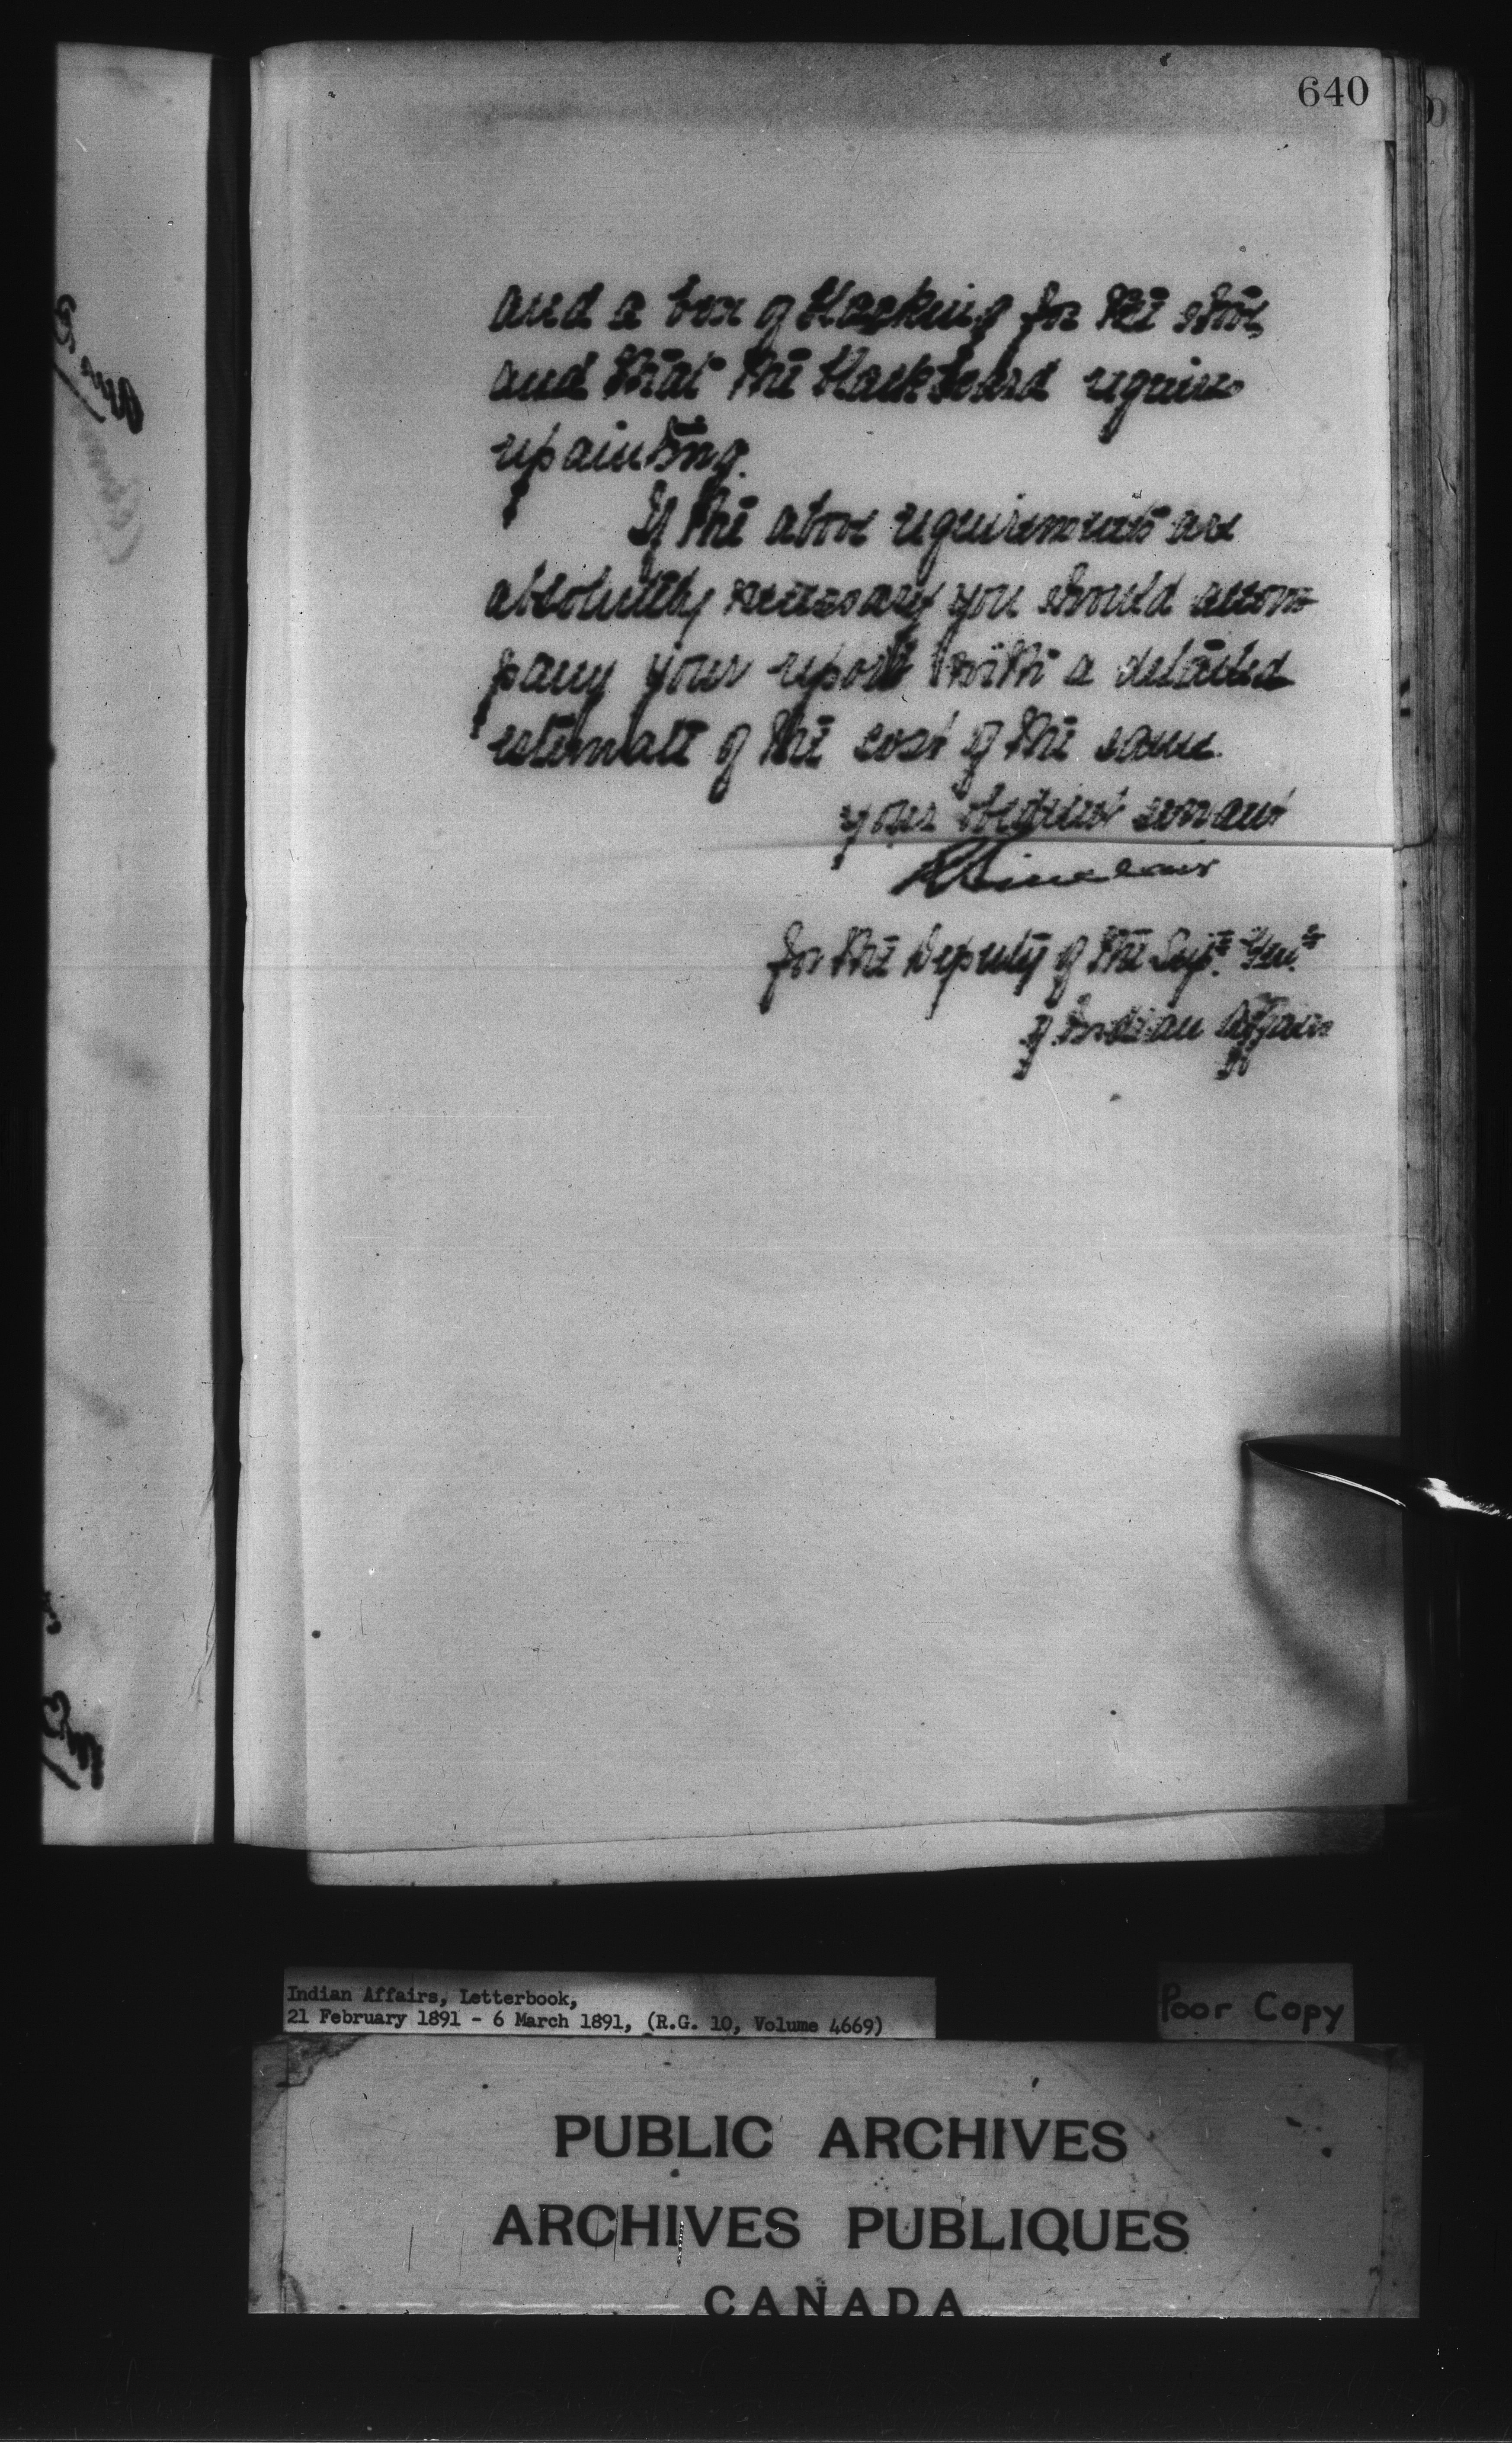 640
and a box of blacking for the stove,
and that the blackboard requires
repainting.
If the above requirements are
absolutely necessary you should accom
pany your report with a detailed
estimate of the cost of the same.
your obedient servant
R Sinclair
for the Deputy of the Supt. Genl.
of Indian Affairs
Indian Affairs, Letterbook,
21 February 1891 - 6 March 1891, (R.G. 10, Volume 4669)
Poor Copy
PUBLIC ARCHIVES
ARCHIVES PUBLIQUES
CANADA